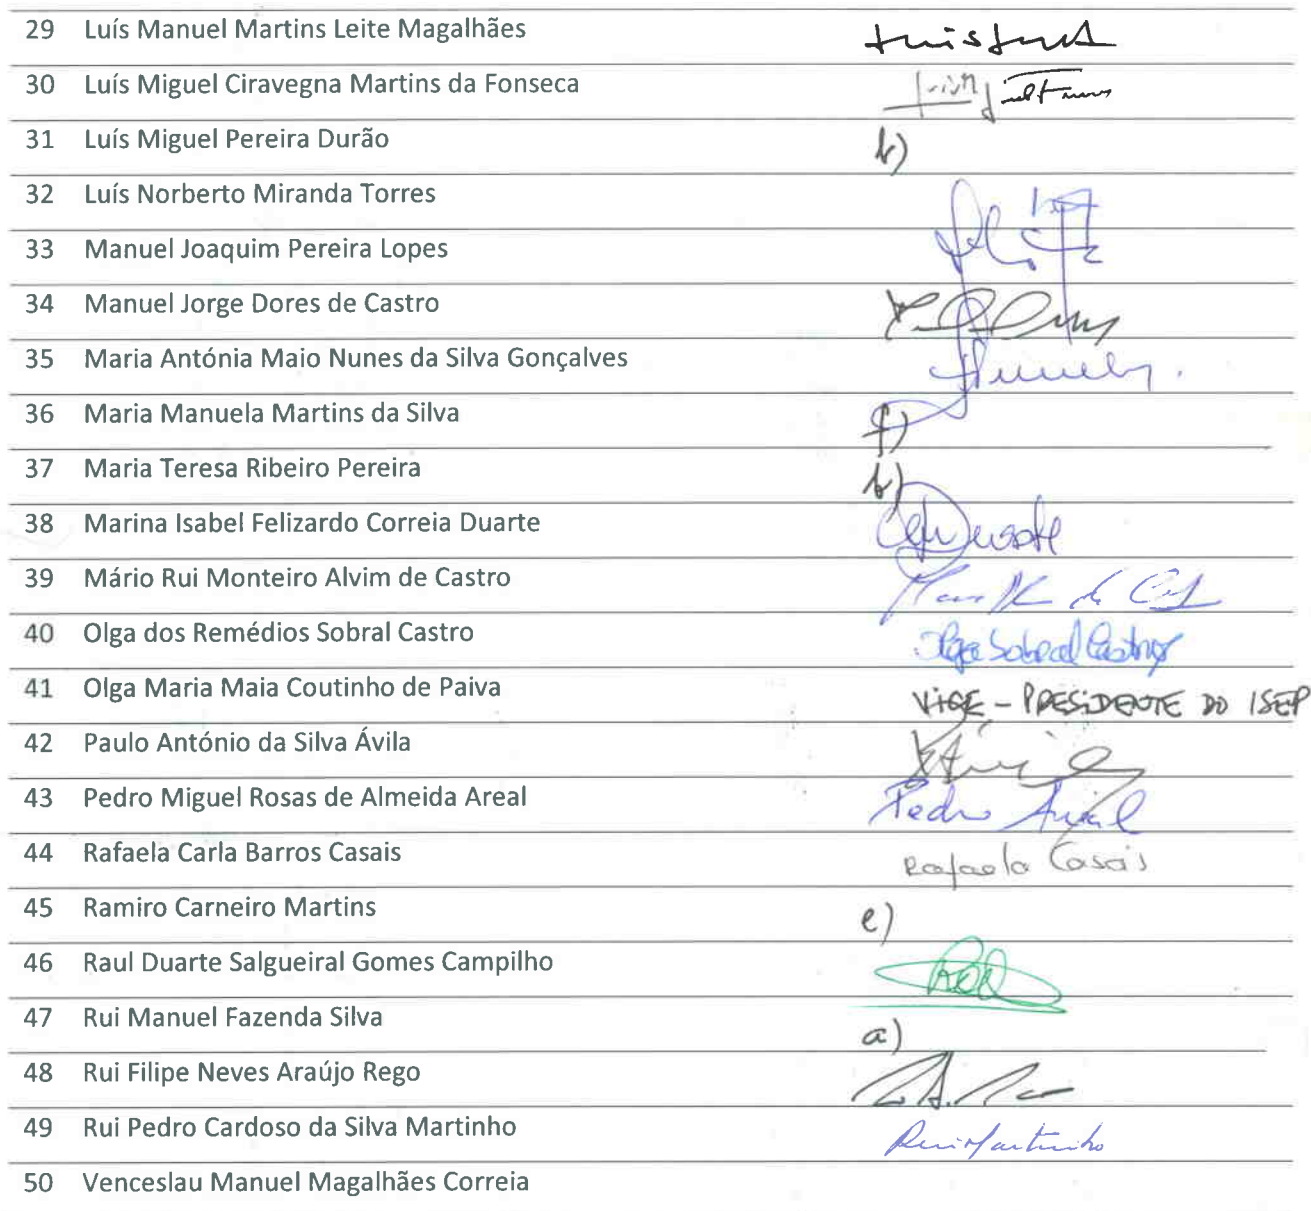 29 Luís Manuel Martins Leite Magalhães
30 Luís Miguel Ciravegna Martins da Fonseca
31 Luís Miguel Pereira Durão b)
32 Luís Norberto Miranda Torres
33 Manuel Joaquim Pereira Lopes
34 Manuel Jorge Dores de Castro
35 Maria Antónia Maio Nunes da Silva Gonçalves
36 Maria Manuela Martins da Silva f)
37 Maria Teresa Ribeiro Pereira b)
38 Marina Isabel Felizardo Correia Duarte
39 Mário Rui Monteiro Alvim de Castro
40 Olga dos Remédios Sobral Castro Olga Sobral Castro
41 Olga Maria Maia Coutinho de Paiva VICE-PRESIDENTE DO ISEP
42 Paulo António da Silva Ávila
43 Pedro Miguel Rosas de Almeida Areal Pedro Areal
44 Rafaela Carla Barros Casais Rafaela Casais
45 Ramiro Carneiro Martins e)
46 Raul Duarte Salgueiral Gomes Campilho
47 Rui Manuel Fazenda Silva a)
48 Rui Filipe Neves Araújo Rego
49 Rui Pedro Cardoso da Silva Martinho Rui Martinho
50 Venceslau Manuel Magalhães Correia